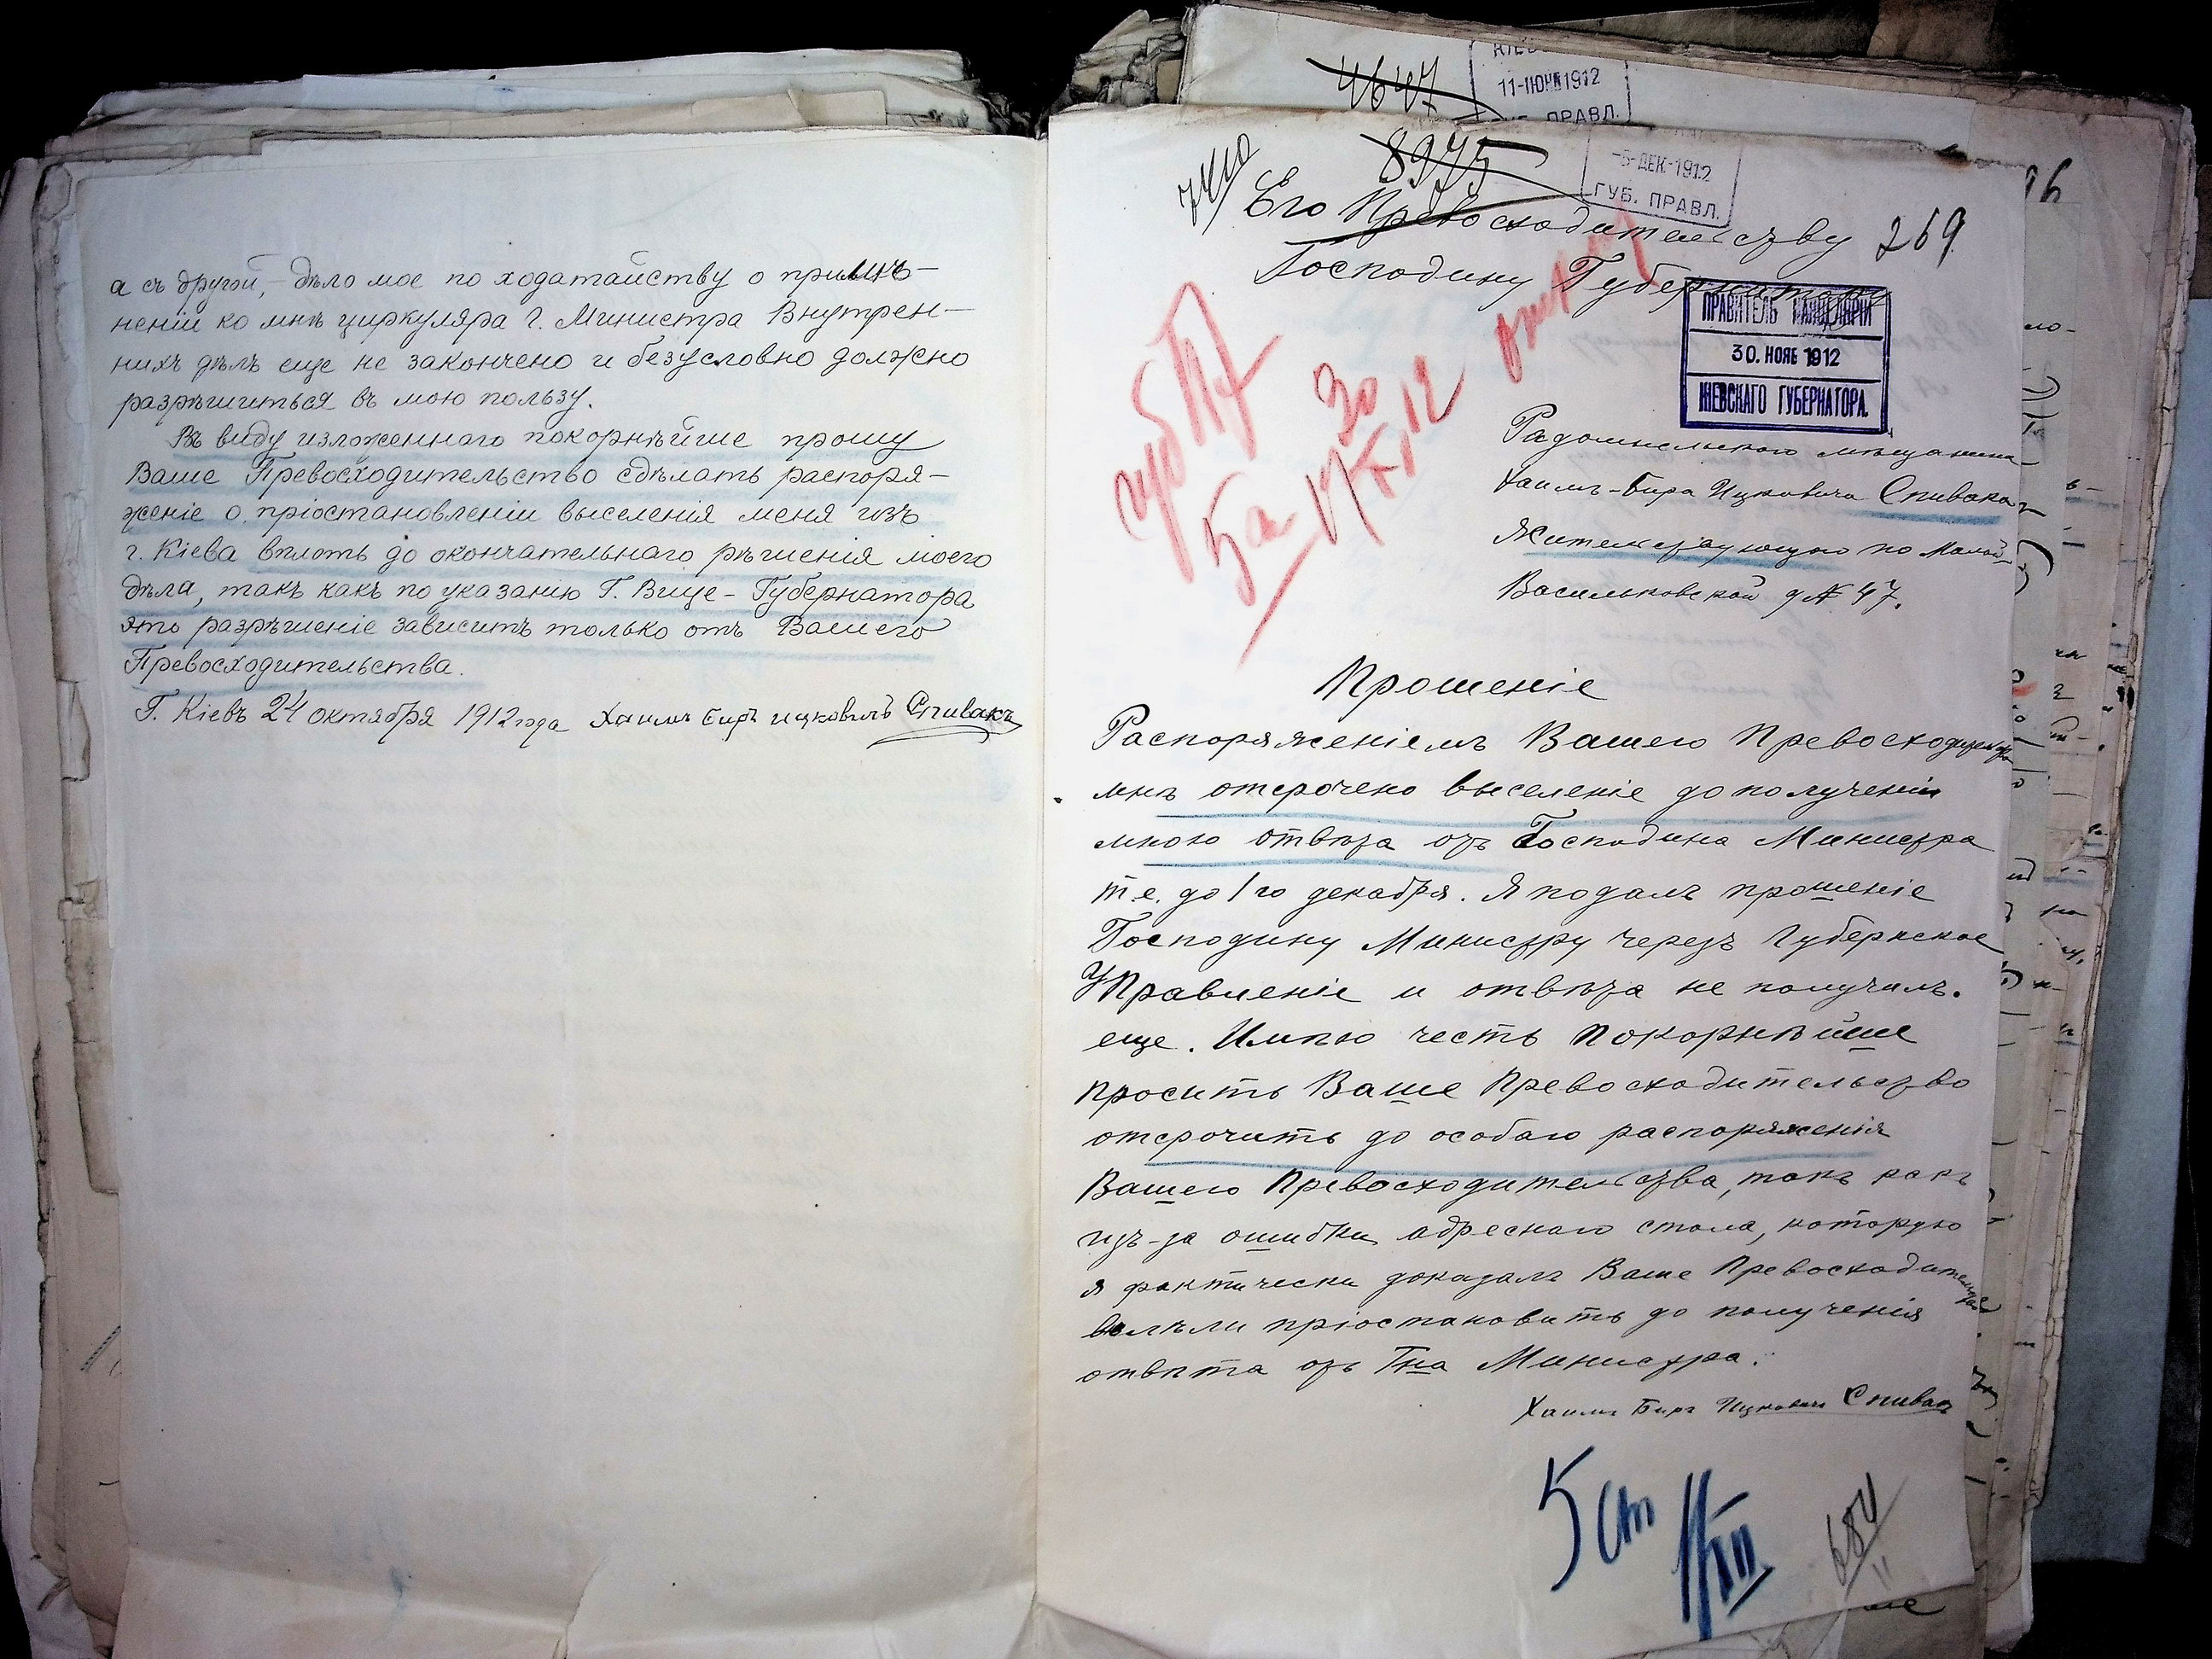 а съ другой, – дѣло мое по ходатайству о примѣ-
неніи ко мнѣ циркуляра Г. Министра Внутрен-
нихъ дѣлъ еще не закончено и безусловно должно
разрѣшиться въ мою пользу.
Въ виду изложеннаго покорнѣйше прошу
Ваше Превосходительство сдѣлать распоря-
женіе о пріостановленіи выселенія меня изъ
г. Кіева вплоть до окончательнаго рѣшенія моего
дѣла, такъ какъ по указанію Г. Вице-Губернатора
это разрѣшеніе зависитъ только отъ Вашего
Превосходительства.
Г. Кіевъ 24 октября 1912 года Хаимъ Биръ Ицковичъ Спивакъ
4647
11-ІЮН 1912
ПРАВЛ.
8975
-5-ДЕК-1912
ГУБ. ПРАВЛ.
Его Превосходительству
269
Господину Губернатору
ПРАВИТЕЛЬ КАНЦЕЛЯРІИ
30. НОЯБ 1912
КІЕВСКАГО ГУБЕРНАТОРА.
30
XI 12
Радомысльского мѣщанина
Хаимъ-Бира Ицковича Спивака
Жительствующаго по Малой
Васильковской д № 47.
Прошеніе
Распоряженіемъ Вашего Превосходительства
мнѣ отсрочено выселеніе до полученіи
мною отвѣта отъ Господина Министра
т.е. до 1го декабря. Я подалъ прошеніе
Господину Министру черезъ Губернское
Управленіе и отвѣта не получилъ.
еще. Имѣю честь покорнѣйше
просить Ваше Превосходительство
отсрочить до особаго распоряженія
Вашего Превосходительства, такъ какъ
изъ-за ошибки адреснаго стола, которую
я фактически доказалъ Ваше Превосходительство
велѣли пріостановить до полученія
отвѣта отъ Гна Министра.
Хаимъ Биръ Ицковичъ Спивакъ
5 ст
1/XII